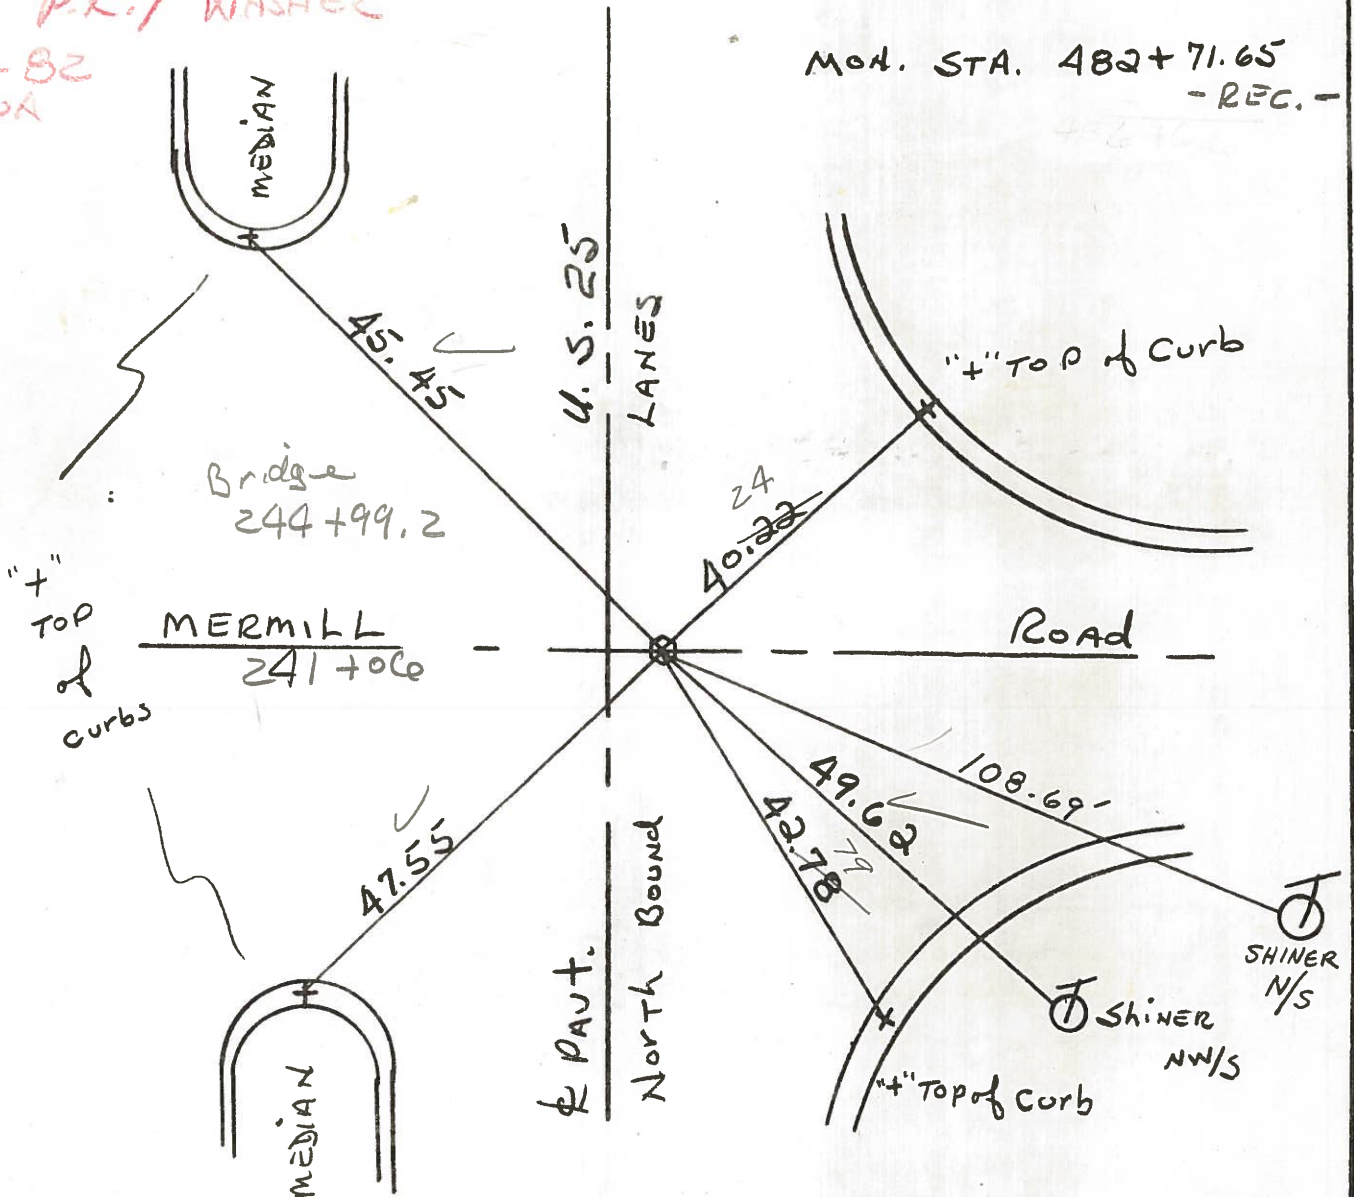 P.K. / WASHER
-82
MON. STA. 482+71.65
- REC. -
MEDIAN
U.S. 25
LANES
45.45
"+" TOP of Curb
Bridge
244+99.2
24
40.22
"+"
TOP
of
curbs
MERMILL
241+00
Road
108.69
49.62
42.78
79
47.55
℄ PAVT.
North Bound
SHINER
N/S
ShiNER
NW/S
"+" Top of Curb
MEDIAN